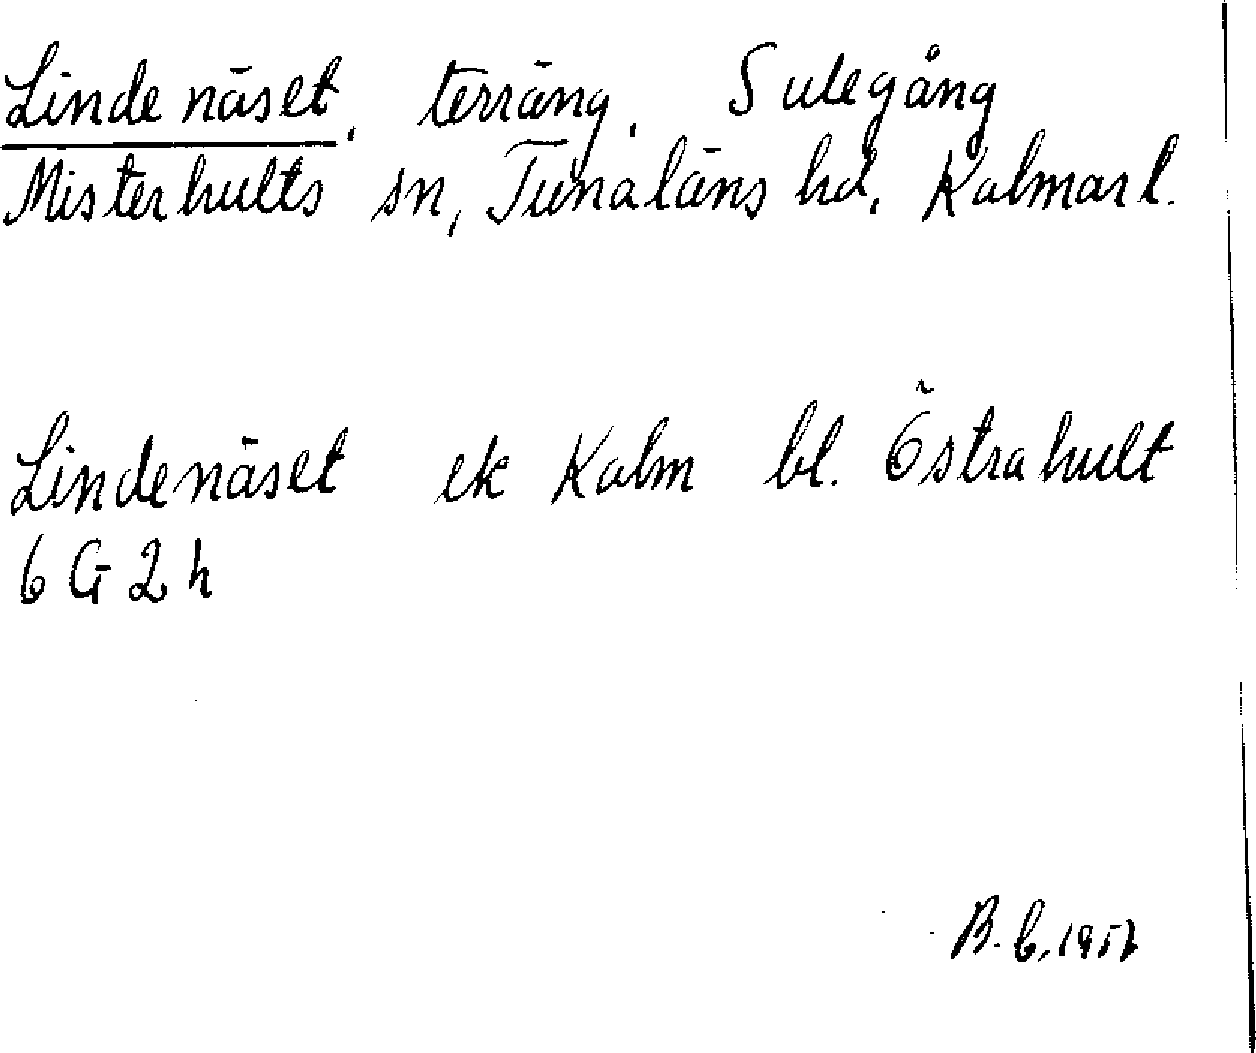 Lindenäset, terräng. Sulegång
Misterhults sn, Tunaläns hd. Kalmar l.
Lindenäset ek Kalm bl. Östrahult
6 G 2 h
B. G. 1957